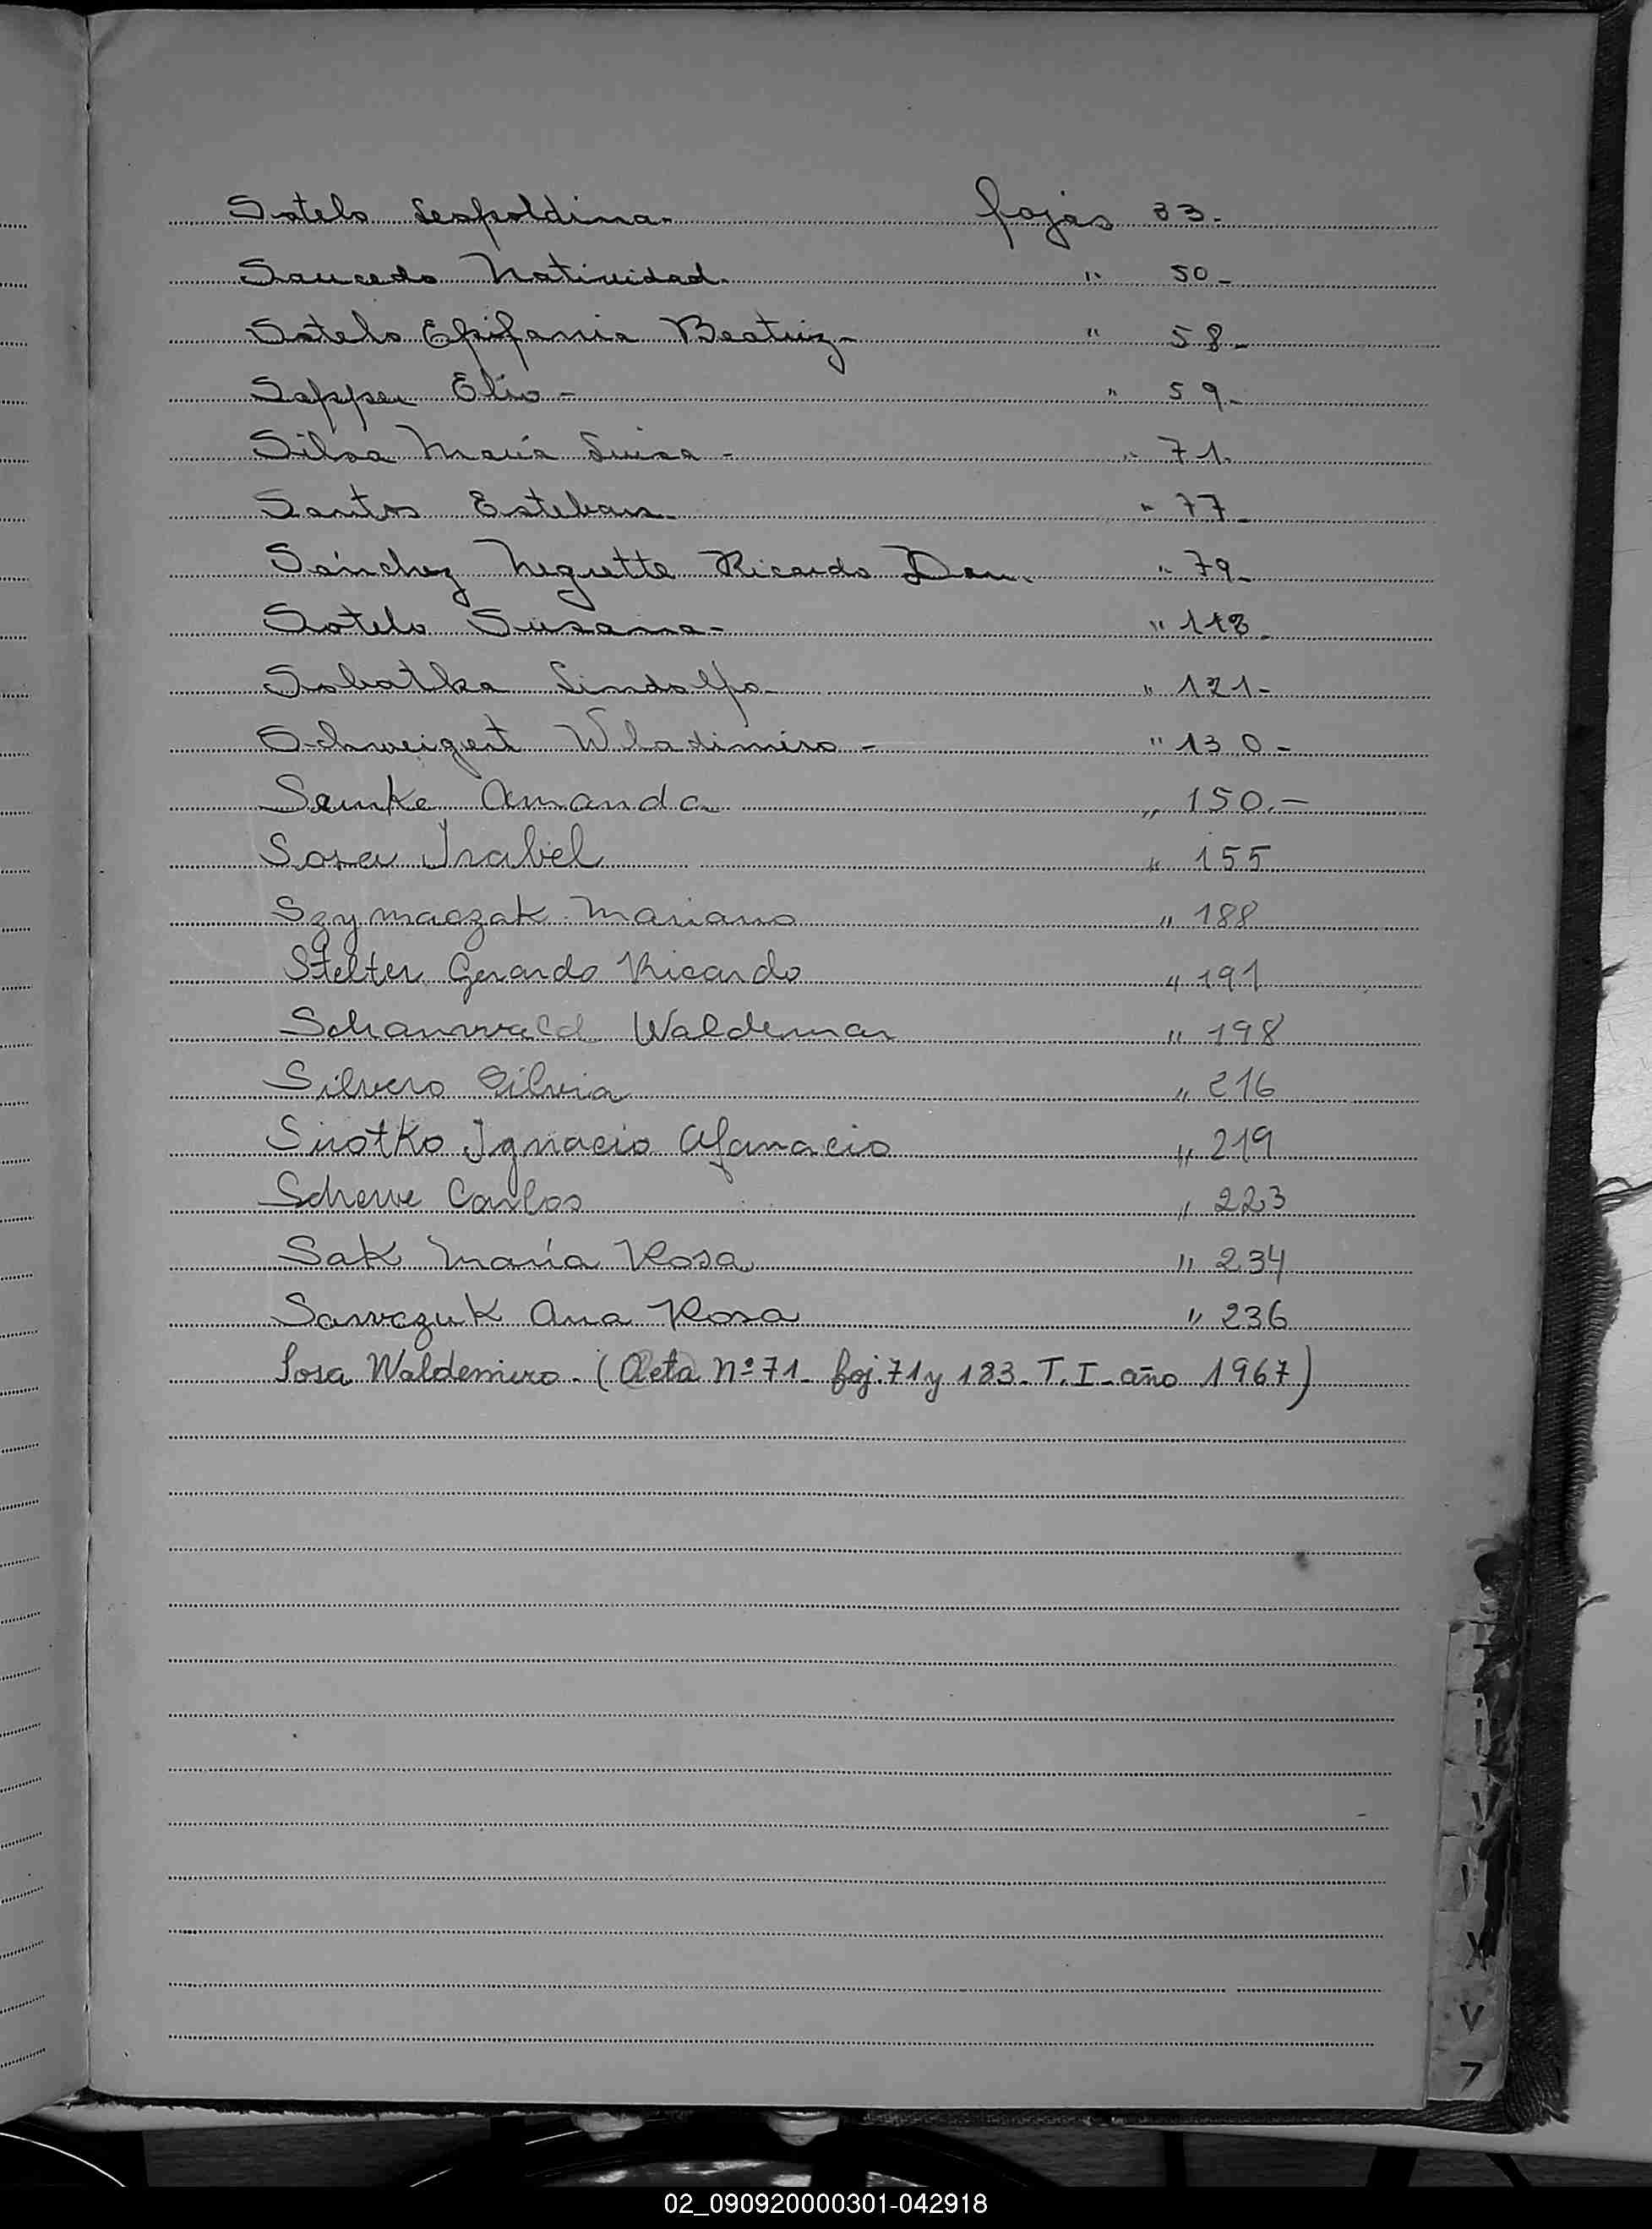 Sotelo Leopoldina- fojas 33-
Saucedo Natividad- " 50-
Sotelo Epifania Beatriz- " 58-
Sapper Elio- " 59-
Silva María Luisa- " 71-
Santos Esteban- " 77-
Sánchez Negrette Ricardo Dan. " 79-
Sotelo Susana- " 118-
Sobatka Lindolfo- " 121-
Schweigert Wladimiro- " 130-
Semke Amanda " 150.-
Sosa Isabel " 155
Szymaczak Mariano " 188
Stelter Gerardo Ricardo " 191
Schanwald Waldemar " 198
Silvero Silvia " 216
Sirotko Ignacio Afanacio " 219
Scherve Carlos " 223
Sak María Rosa " 234
Sawczuk Ana Rosa " 236
Sosa Waldemiro. (Acta Nº 71- foj. 71 y 183- T. I- año 1967)
V
X
V
7
02_090920000301-042918